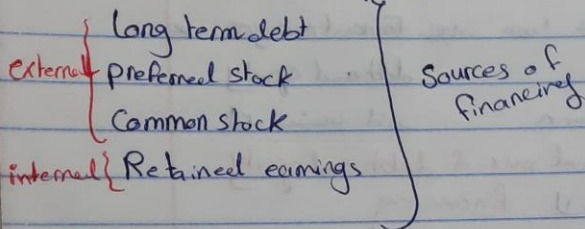 Long term debt
external preferred stock
Common stock
internal Retained earnings
Sources of
financing